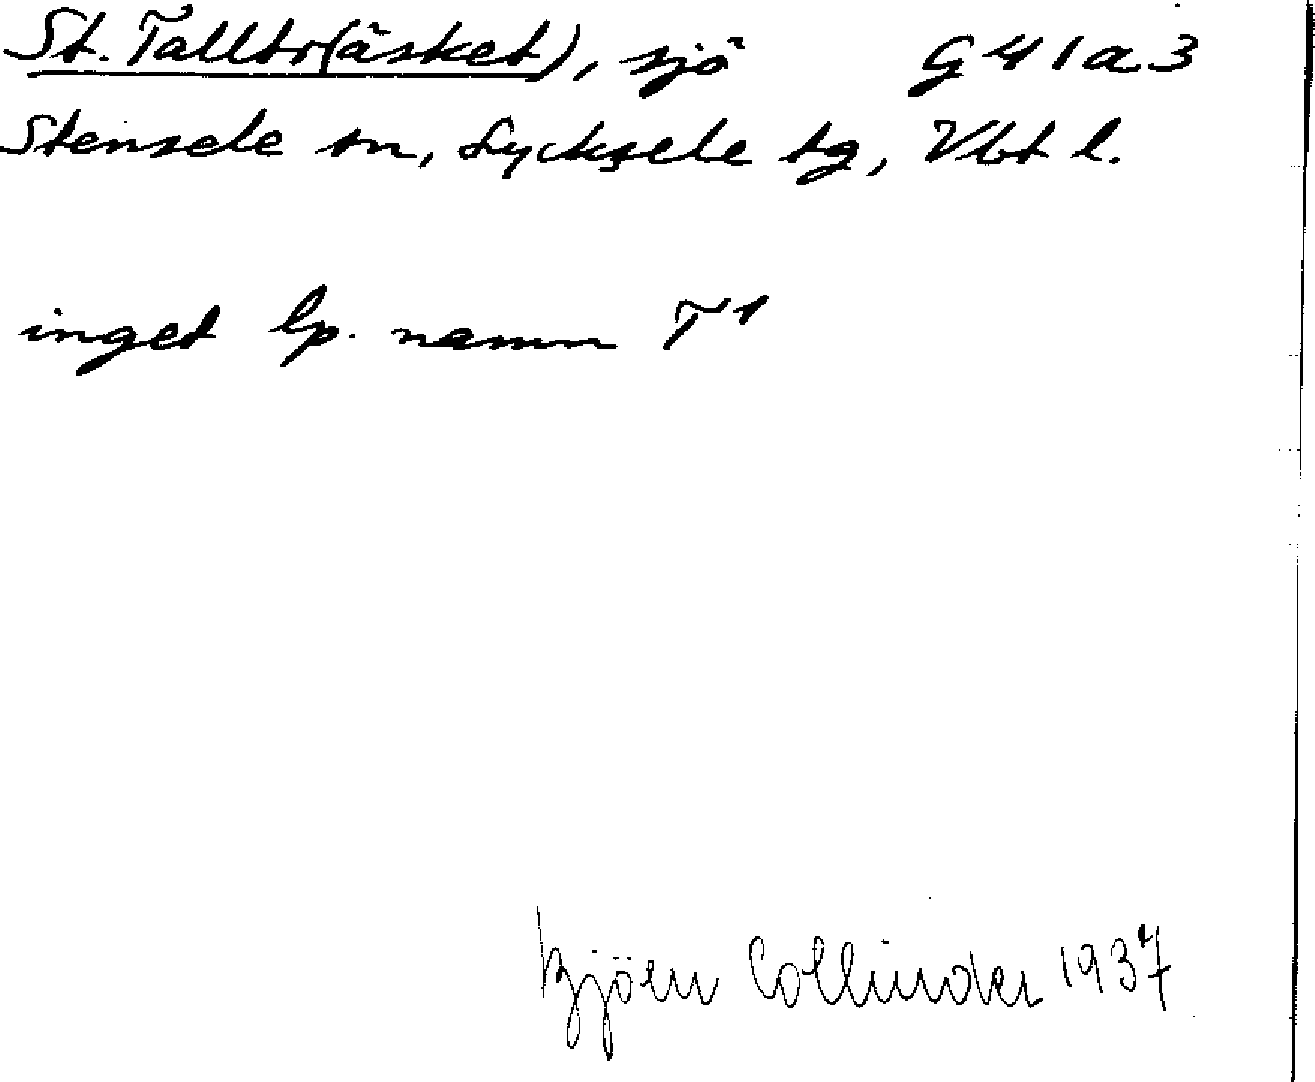 St. Talltr(äsket), sjö G 41 a 3
Stensele sn, Lycksele tg, Vbt l.
inget lp. namn T 1
Björn Collinder 1937